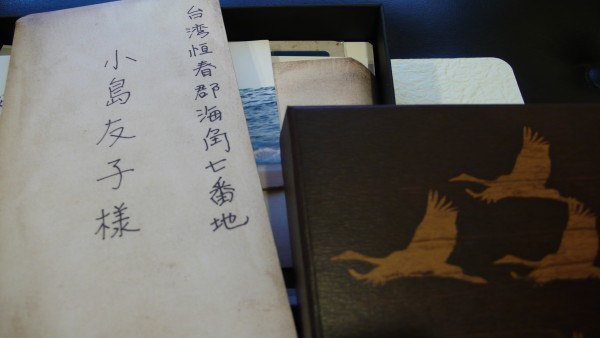 台湾恒春郡海角七番地
小島友子様